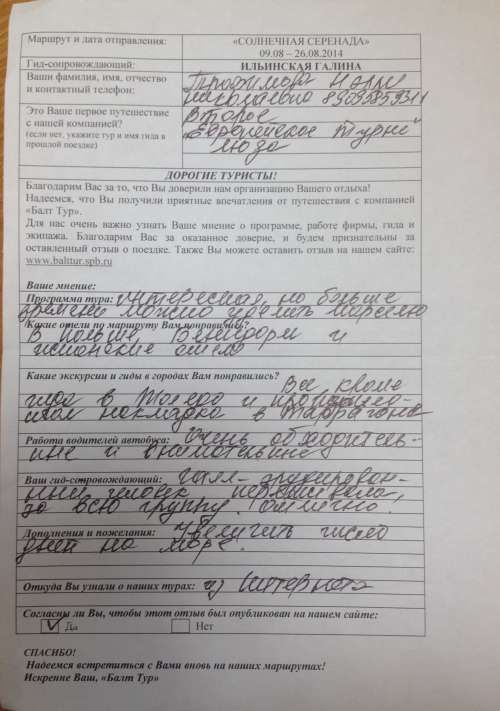 Маршрут и дата отправления:
«СОЛНЕЧНАЯ СЕРЕНАДА»
09.08 – 26.08.2014
Гид-сопровождающий:
ИЛЬИНСКАЯ ГАЛИНА
Ваши фамилия, имя, отчество
и контактный телефон:
Трофимова Нэлли
Николаевна
Это Ваше первое путешествие
с нашей компанией?
(если нет, укажите тур и имя гида в
прошлой поездке)
Второе
"Европейское турне"
ДОРОГИЕ ТУРИСТЫ!
Благодарим Вас за то, что Вы доверили нам организацию Вашего отдыха!
Надеемся, что Вы получили приятные впечатления от путешествия с компанией
«Балт Тур».
Для нас очень важно узнать Ваше мнение о программе, работе фирмы, гида и
экипажа. Благодарим Вас за оказанное доверие, и будем признательны за
оставленный отзыв о поездке. Также Вы можете оставить отзыв на нашем сайте:
www.balttur.spb.ru
Ваше мнение:
Программа тура: интересная, но больше
времени можно уделить Марселю
Какие отели по маршруту Вам понравились?
В Польше, Бенидорм и
испанские отели
Какие экскурсии и гиды в городах Вам понравились?
Все кроме
гида в Толедо и
накладка в Таррагоне
Работа водителей автобуса: Очень обходитель-
ные и внимательные
Ваш гид-сопровождающий: Галя- эрудирован-
ный человек переживала,
за всю группу. Отлично.
Дополнения и пожелания: Увеличить число
дней на море.
Откуда Вы узнали о наших турах: из Интернета
Согласны ли Вы, чтобы этот отзыв был опубликован на нашем сайте:
Да
Нет
СПАСИБО!
Надеемся встретиться с Вами вновь на наших маршрутах!
Искренне Ваш, «Балт Тур»